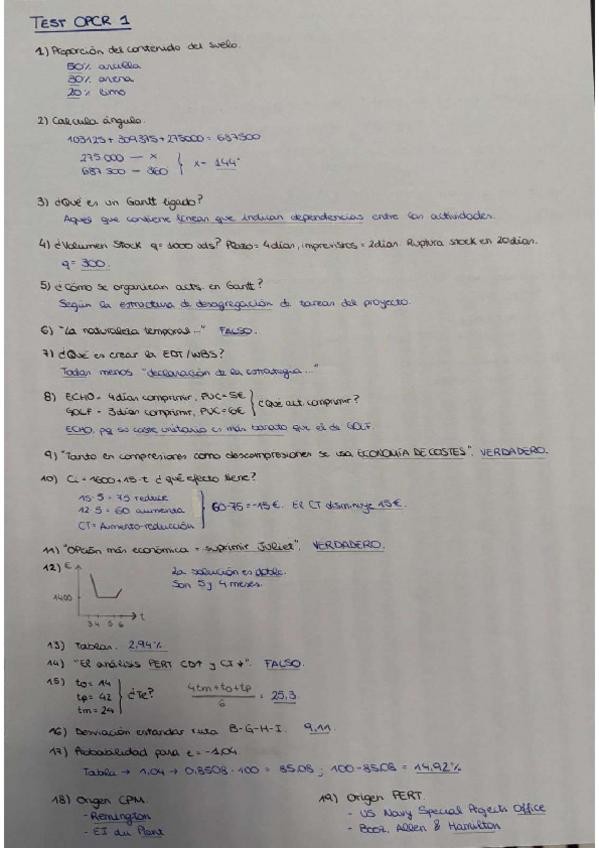 TEST OPCR 1
1) Proporción del contenido del suelo.
50% arcilla
30% arena
20% limo
2) Calcula ángulo.
103125 + 309375 + 275000 = 687500
275000 — x
687500 — 360 } x = 144°
3) ¿Qué es un Gantt ligado?
Aquel que contiene líneas que indican dependencias entre las actividades.
4) ¿Volumen Stock q = 1000 uds? Plazo = 4 días, imprevistos = 2 días. Ruptura stock en 20 días.
q = 300.
5) ¿Cómo se organizan acts. en Gantt?
Según la estructura de desagregación de tareas del proyecto.
6) "La naturaleza temporal..." FALSO.
7) ¿Qué es crear la EDT/WBS?
Todas menos "declaración de la estrategia..."
8) ECHO = 4 días comprimir, PUC = 5€
GOLF = 3 días comprimir, PUC = 6€ } ¿Qué act. comprimir?
ECHO, pq su coste unitario es más barato que el de GOLF.
9) "Tanto en compresiones como descompresiones se usa ECONOMÍA DE COSTES". VERDADERO.
10) Ci = 1600 + 15·t ¿qué efecto tiene?
15·5 = 75 reduce
12·5 = 60 aumenta
CT = Aumento-reducción } 60-75 = -15€. El CT disminuye 15€.
11) "Opción más económica = suprimir Juliet". VERDADERO.
12) €
La solución es doble.
Son 5 y 4 meses.
1400
3 4 5 6 t
13) Tablas. 2,94%
14) "El análisis PERT CD↑ y CI↓". FALSO.
15) to = 14
tp = 42
tm = 24 } ¿Te? 4tm+to+tp / 6 = 25,3
16) Desviación estándar ruta B-G-H-I. 9,11.
17) Probabilidad para z = -1,04.
Tabla → 1,04 → 0,8508 · 100 = 85,08 ; 100 - 85,08 = 14,92%
18) Origen CPM.
- Remington
- EI du Plant
19) Origen PERT.
- US Navy Special Pojects Office
- Booz, Allen & Hamilton